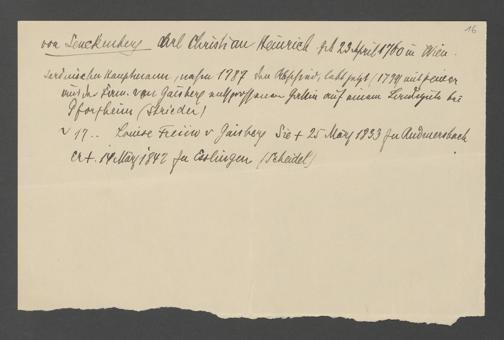 16
von Senckenberg Carl Christian Heinrich geb 23 April 1760 in Wien.
Hauptmann, nahm 1787 den Abschied, lebt jetzt, 1794 mit seiner
aus der Fam. von Gaisberg entsprossenen Gattin auf einem Landgute bei
Pforzheim (Strieder)
v 17.. Louise Freiin v Gaisberg Sie + 25 März 1833 zu
Er + 14 März 1842 zu Esslingen (Scheidel)